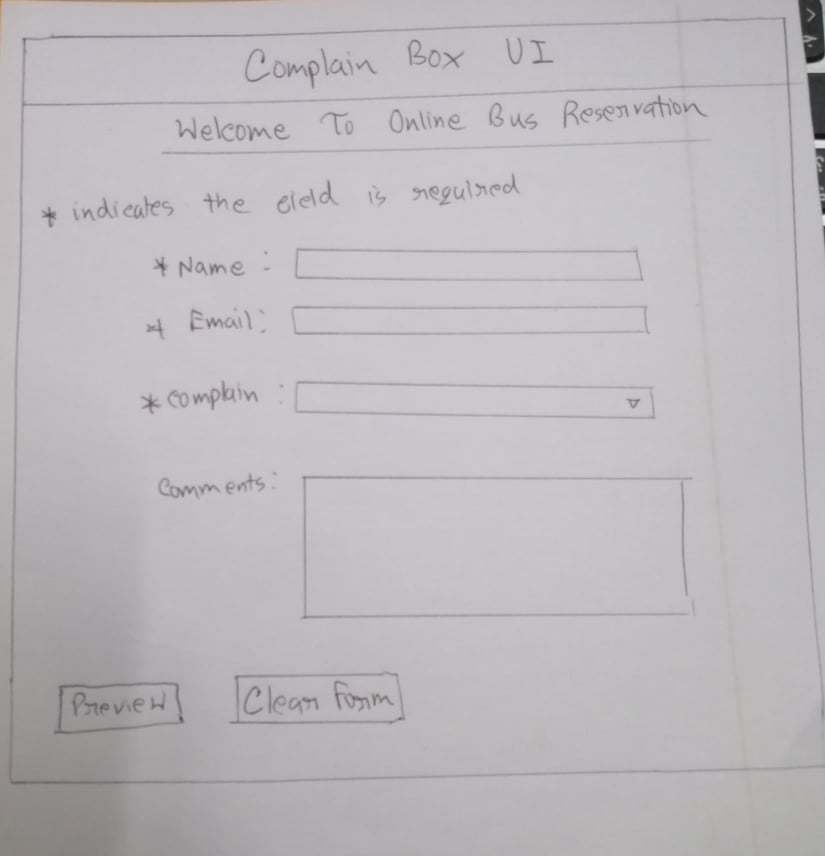 Complain Box UI
Welcome To Online Bus Reservation
* indicates the eield is required
* Name :
* Email :
* complain :
Comments :
Preview Clear Form